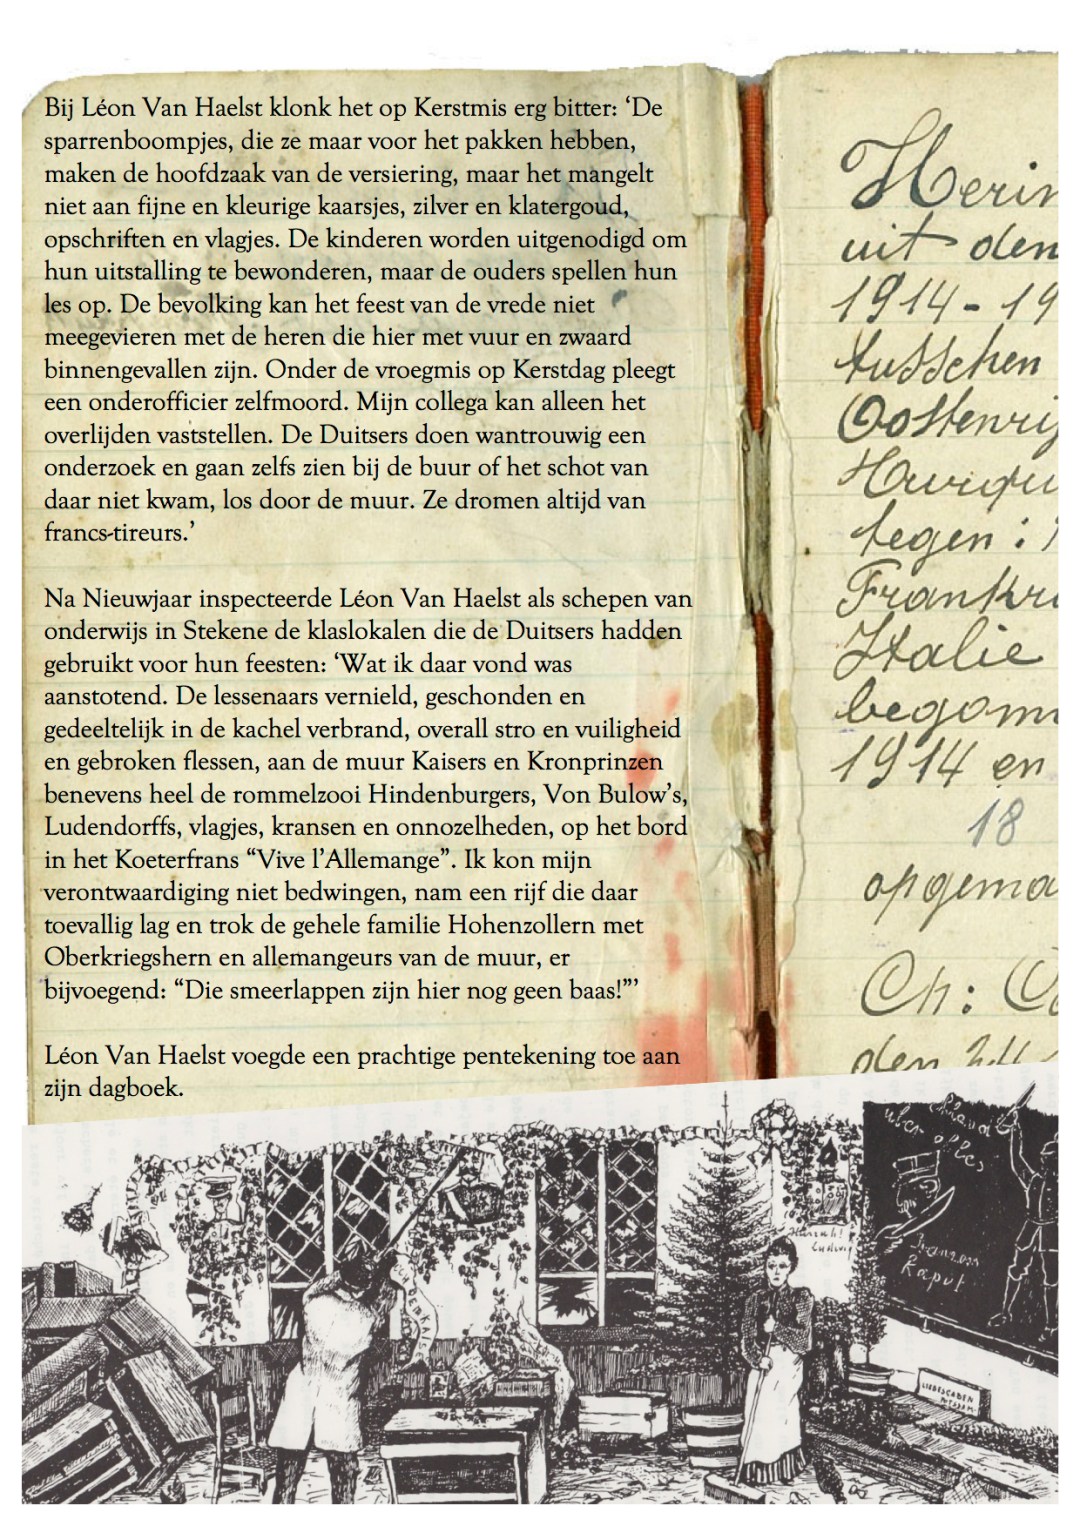 Bij Léon Van Haelst klonk het op Kerstmis erg bitter: ‘De
sparrenboompjes, die ze maar voor het pakken hebben,
maken de hoofdzaak van de versiering, maar het mangelt
niet aan fijne en kleurige kaarsjes, zilver en klatergoud,
opschriften en vlagjes. De kinderen worden uitgenodigd om
hun uitstalling te bewonderen, maar de ouders spellen hun
les op. De bevolking kan het feest van de vrede niet
meegevieren met de heren die hier met vuur en zwaard
binnengevallen zijn. Onder de vroegmis op Kerstdag pleegt
een onderofficier zelfmoord. Mijn collega kan alleen het
overlijden vaststellen. De Duitsers doen wantrouwig een
onderzoek en gaan zelfs zien bij de buur of het schot van
daar niet kwam, los door de muur. Ze dromen altijd van
francs-tireurs.’
Na Nieuwjaar inspecteerde Léon Van Haelst als schepen van
onderwijs in Stekene de klaslokalen die de Duitsers hadden
gebruikt voor hun feesten: ‘Wat ik daar vond was
aanstotend. De lessenaars vernield, geschonden en
gedeeltelijk in de kachel verbrand, overall stro en vuiligheid
en gebroken flessen, aan de muur Kaisers en Kronprinzen
benevens heel de rommelzooi Hindenburgers, Von Bulow’s,
Ludendorffs, vlagjes, kransen en onnozelheden, op het bord
in het Koeterfrans “Vive l’Allemange”. Ik kon mijn
verontwaardiging niet bedwingen, nam een rijf die daar
toevallig lag en trok de gehele familie Hohenzollern met
Oberkriegshern en allemangeurs van de muur, er
bijvoegend: “Die smeerlappen zijn hier nog geen baas!”’
Léon Van Haelst voegde een prachtige pentekening toe aan
zijn dagboek.
Herin
uit den
1914-19
tusschen
Oostenrij
tegen :
Frankr
Italie
begonn
1914 en
18
opgema
Ch:
den
uber alles
kaput
LIEBESGABEN